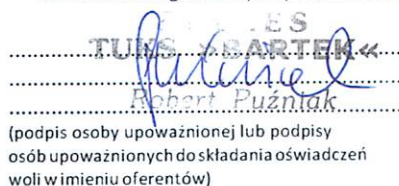 ES
TUKS »BARTEK«
Robert Puźniak
(podpis osoby upoważnionej lub podpisy
osób upoważnionych do składania oświadczeń
woli w imieniu oferentów)